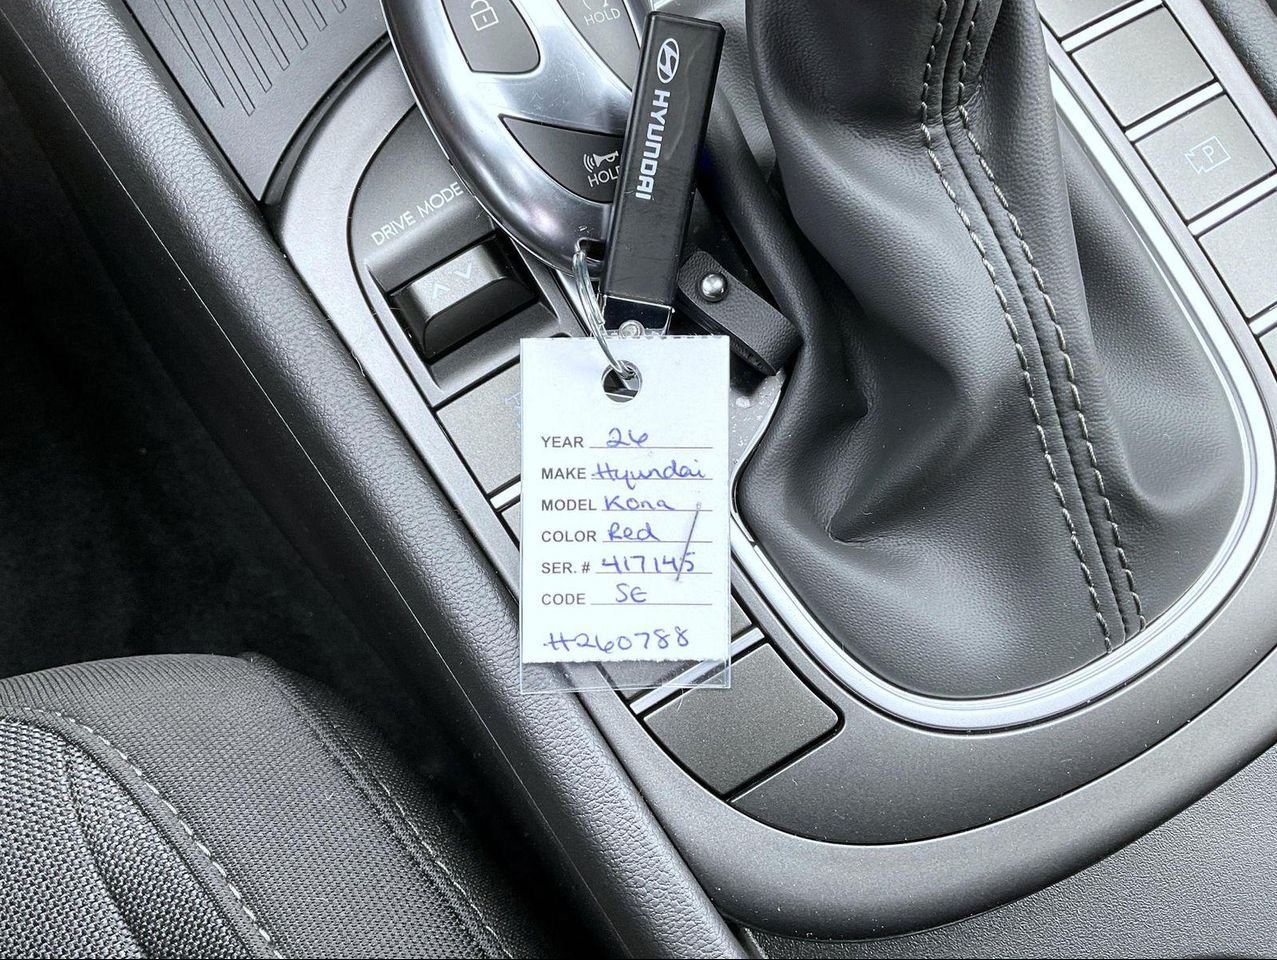 HOLD
HYUNDAI
HOLD
DRIVE MODE
P
YEAR 26
MAKE Hyundai
MODEL Kona
COLOR Red
SER. # 417145
CODE SE
#260788